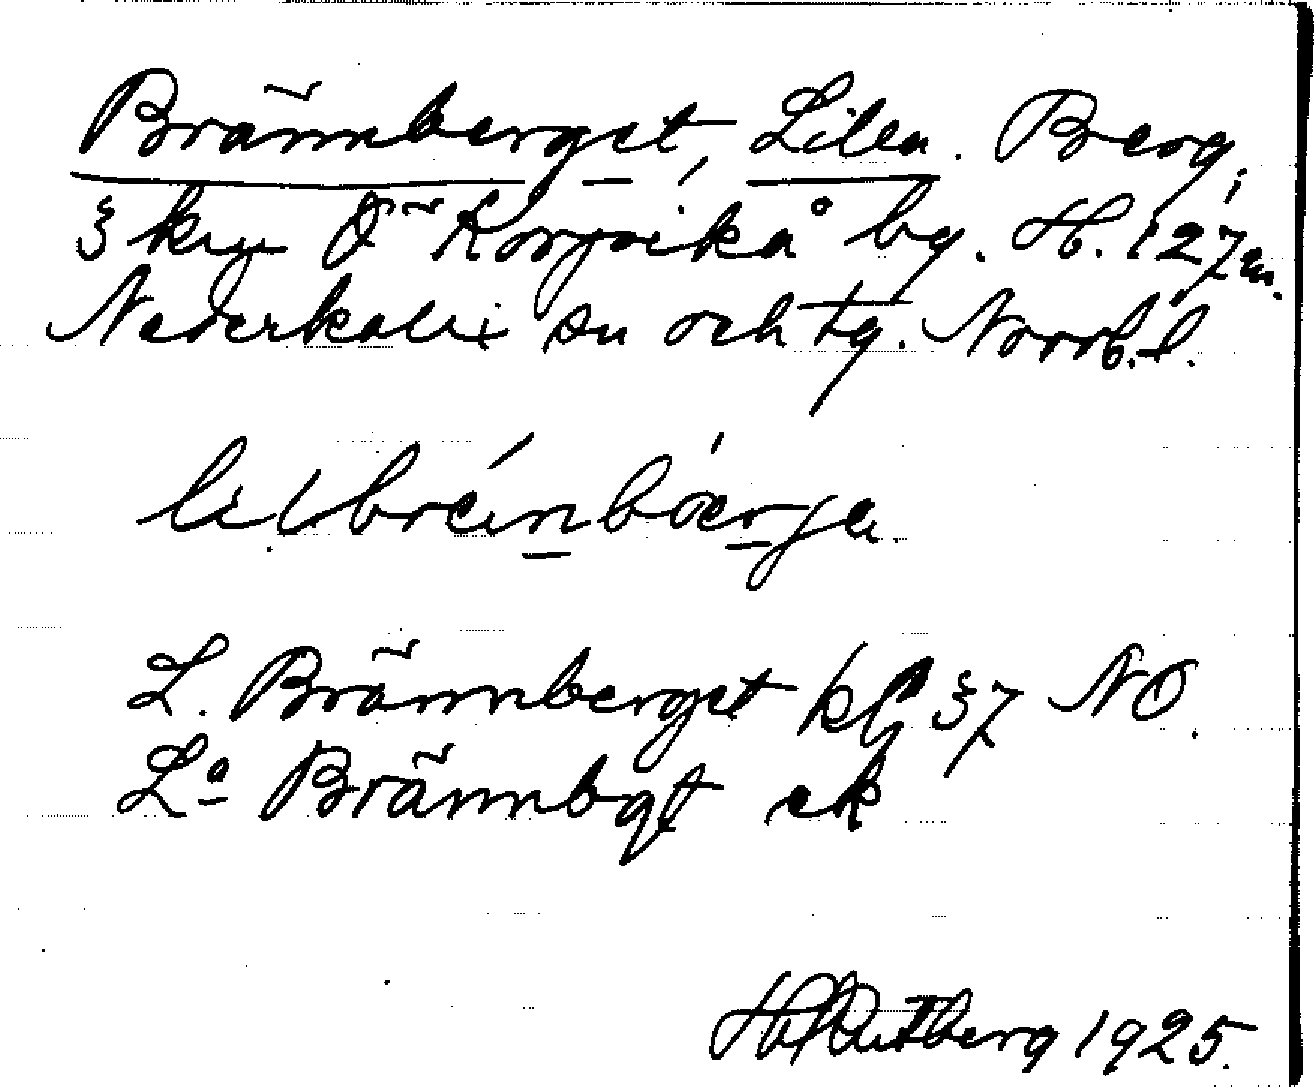 Brännberget, Lilla. Berg,
3 km Ö Korpikå by. H. 127 m.
Nederkalix sn och tg. Norrb. l.
L. Brännberget kbl 37 NO.
La Brännbgt ek
Hj Rutberg 1925.